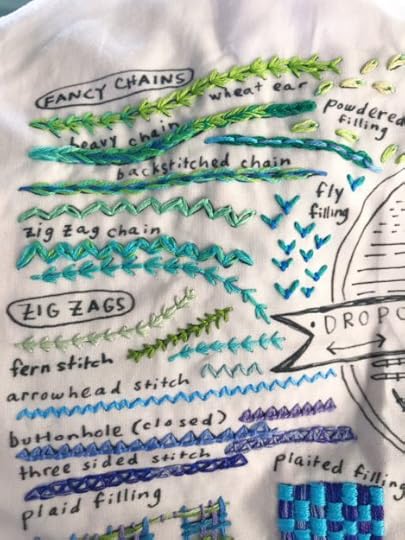 FANCY CHAINS
wheat ear
powdered
filling
heavy chain
backstitched chain
fly
filling
zig zag chain
ZIG ZAGS
fern stitch
arrowhead stitch
buttonhole (closed)
three sided stitch
plaid filling
plaited filling